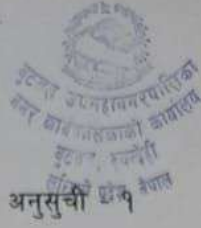 बुटवल उपमहानगरपालिका
नगर कार्यपालिकाको कार्यालय
बुटवल, रुपन्देही
प्रदेश, नेपाल
अनुसुची १